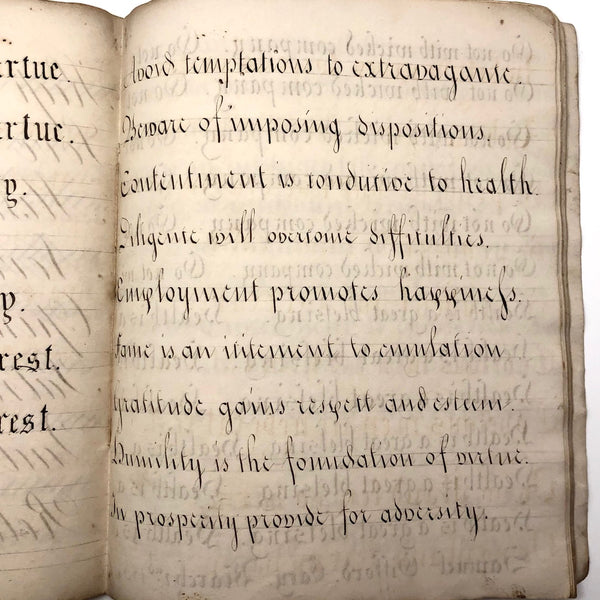 rtue.
rtue.
y.
y.
rest.
rest.
Avoid temptations to extravagance.
Beware of imposing dispositions.
Contentment is conducive to health.
Diligence will overcome difficulties.
Employment promotes happineſs.
Fame is an icitement to emulation
Gratitude gains respect and esteem.
Humility is the foundation of virtue.
In prosperity provide for adversity.